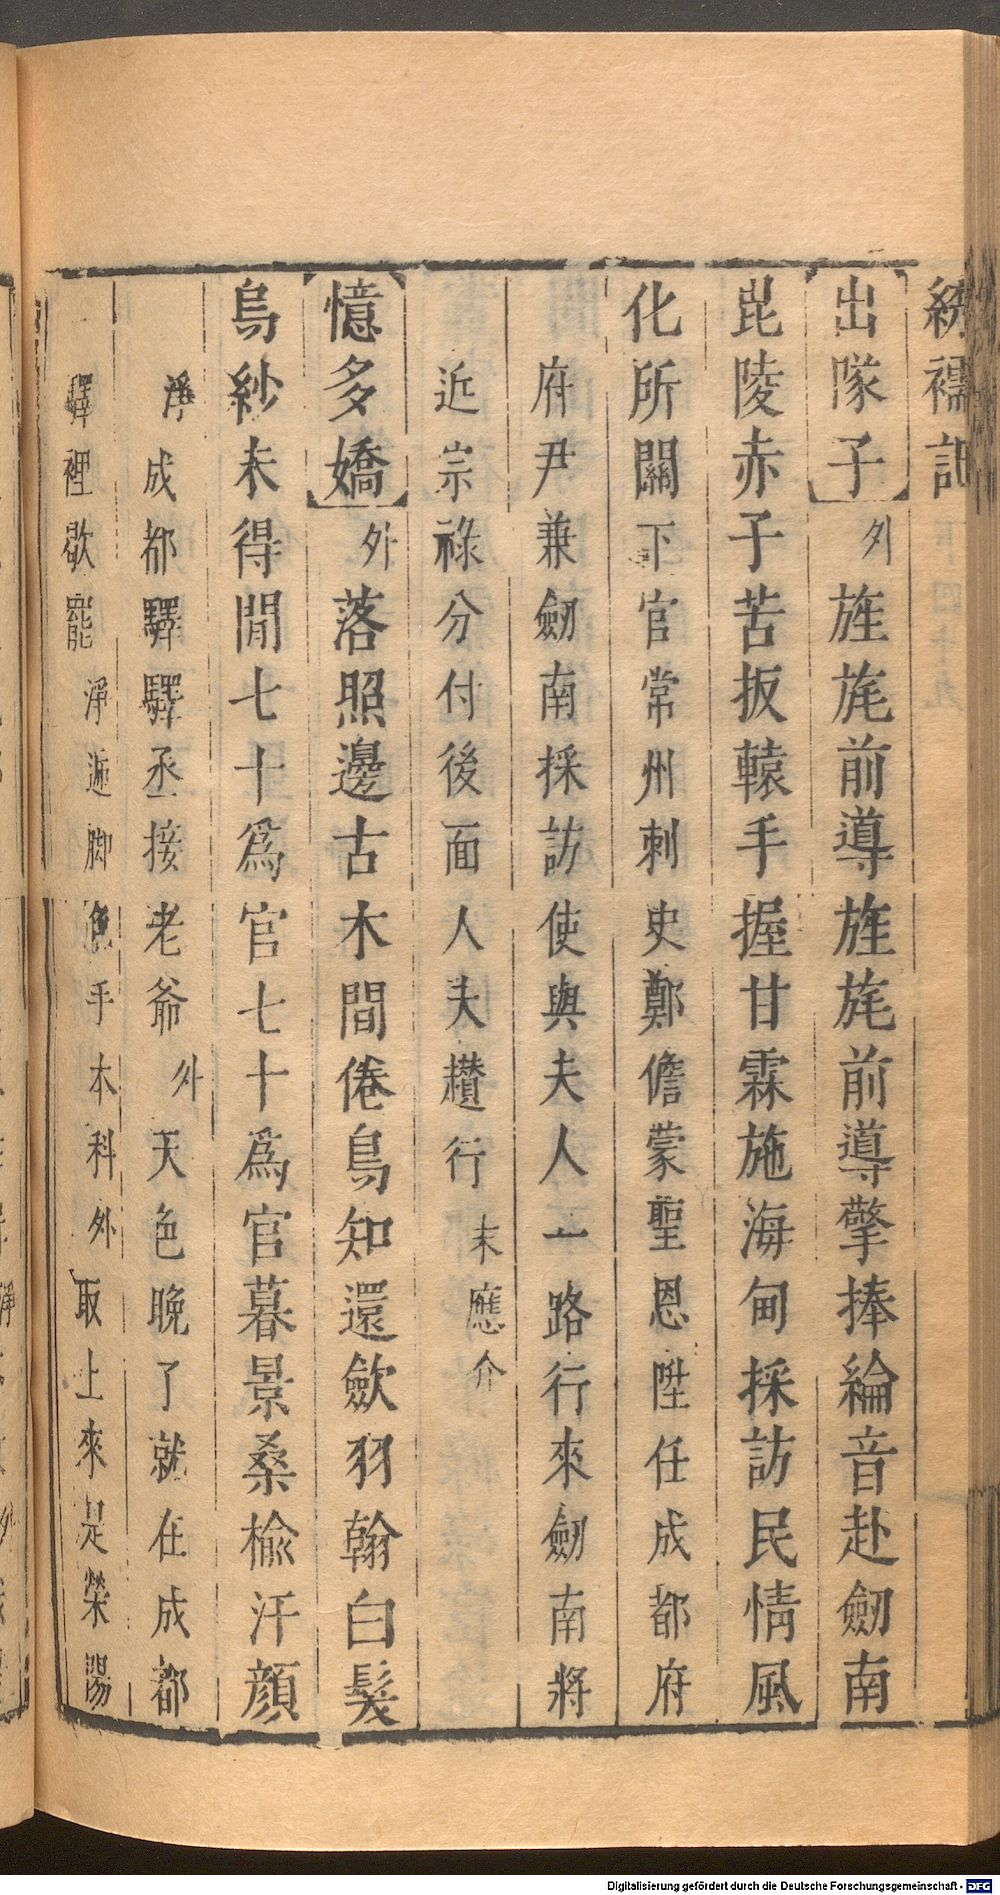 繡襦記
出隊子外旌旄前導旌旄前導擎捧綸音赴劒南
毘陵赤子苦扳轅手握甘霖施海甸採訪民情風
化所關下官常州刺史鄭儋蒙聖恩陞任成都府
府尹兼劒南採訪使與夫人一路行來劒南將
近宗祿分付後面人夫趲行末應介
憶多嬌外落照邊古木間倦鳥知還歛羽翰白髮
烏紗未得閒七十爲官七十爲官暮景桑榆汗顏
淨成都驛驛丞接老爺外天色晚了就在成都
驛裡歇罷淨遞脚色手本科外取上來是榮陽
Digitalisierung gefördert durch die Deutsche Forschungsgemeinschaft - DFG